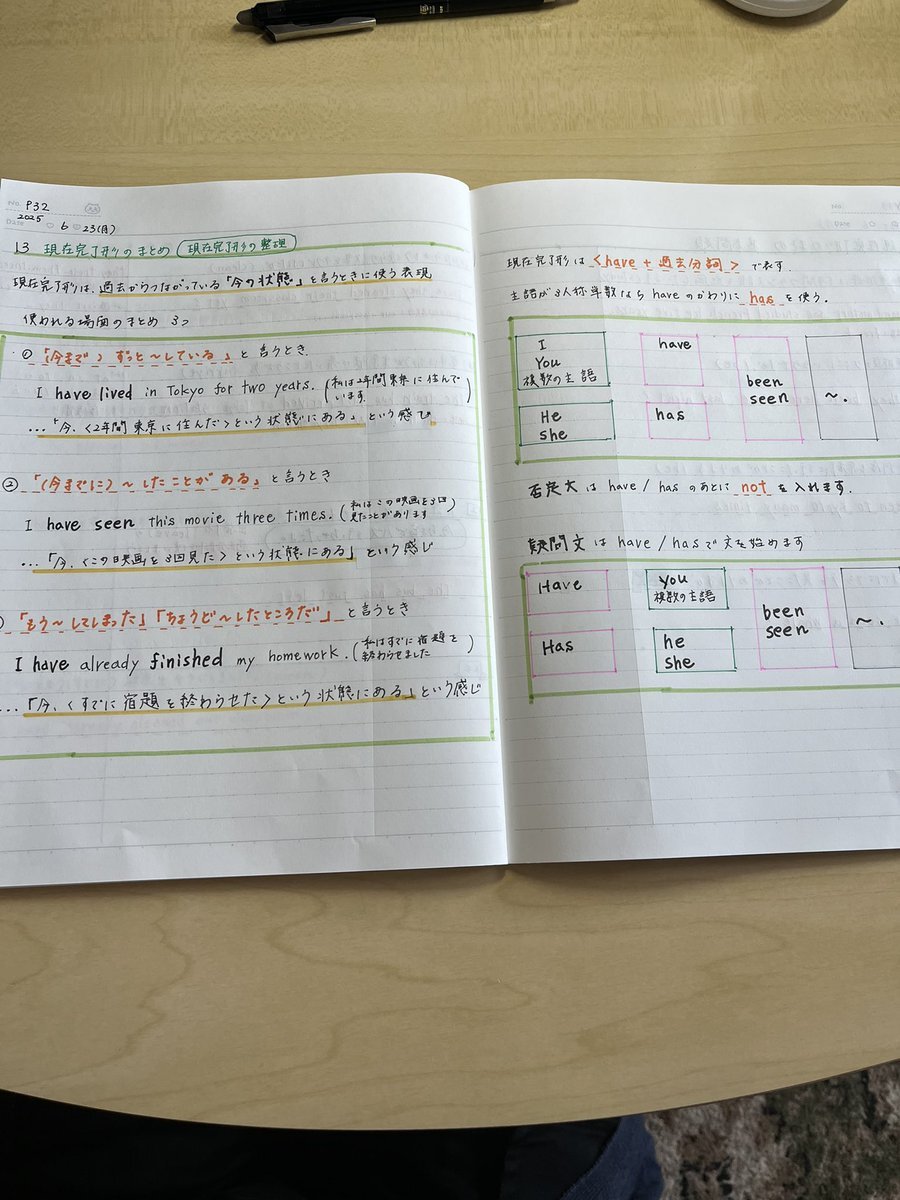 No. P32
2025
Date 6 23(月)
13 現在完了形のまとめ (現在完了形の整理)
現在完了形は、過去からつながっている「今の状態」を言うときに使う表現
使われる場面のまとめ 3つ
① 「(今まで) ずっと〜している」と言うとき
I have lived in Tokyo for two years. (私は2年間東京に住んで
います。)
…「今、<2年間東京に住んだ>という状態にある」という感じ
② 「(今までに)〜したことがある」と言うとき
I have seen this movie three times. (私はこの映画を3回
見たことがあります
…「今、<この映画を3回見た>という状態にある」という感じ
「もう〜してしまった」「ちょうど〜したところだ」と言うとき
I have already finished my homework. (私はすでに宿題を
終わらせました)
…「今、<すでに宿題を終わらせた>という状態にある」という感じ
No.
Date
現在完了形は <have + 過去分詞> で表す.
主語が3人称単数なら have のかわりに has を使う.
I
You
複数の主語
He
she
have
has
been
seen
〜.
否定文は have / has のあとに not を入れます.
疑問文は have / has で文を始めます
Have
Has
you
複数の主語
he
she
been
seen
〜.